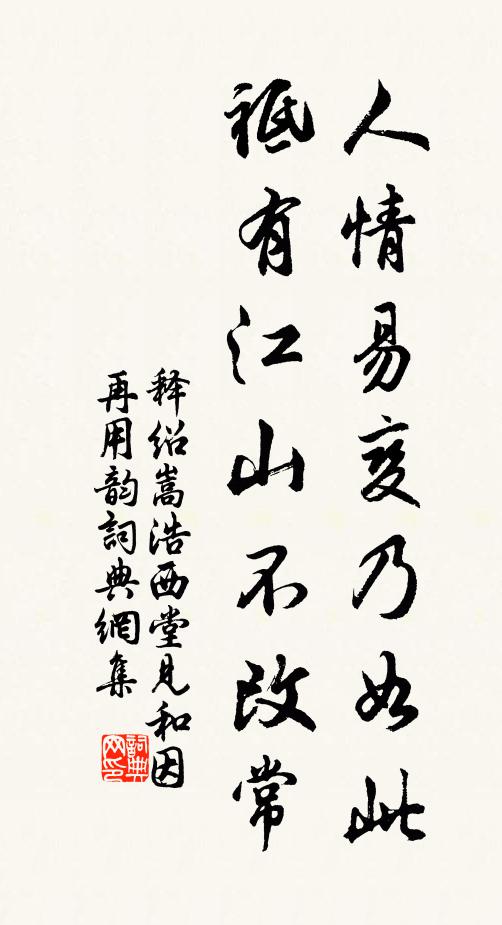 人情易变乃如此
祗有江山不改常
释绍嵩浩西堂见和因
再用韵词典網集
詞典網印